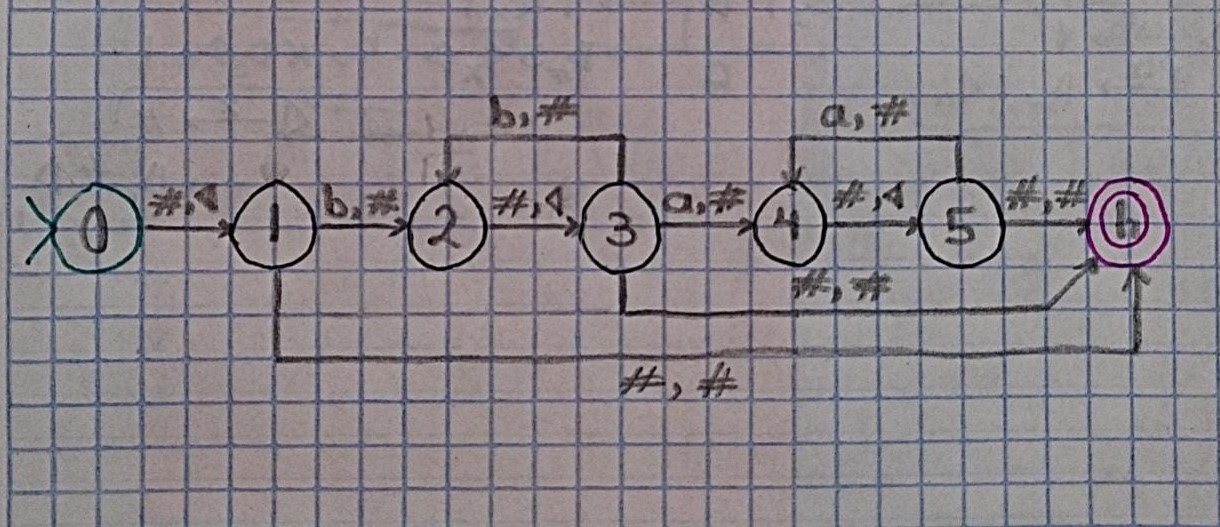 b,# a,#
0 #,◁ 1 b,# 2 #,◁ 3 a,# 4 #,◁ 5 #,# h
#,#
#,#